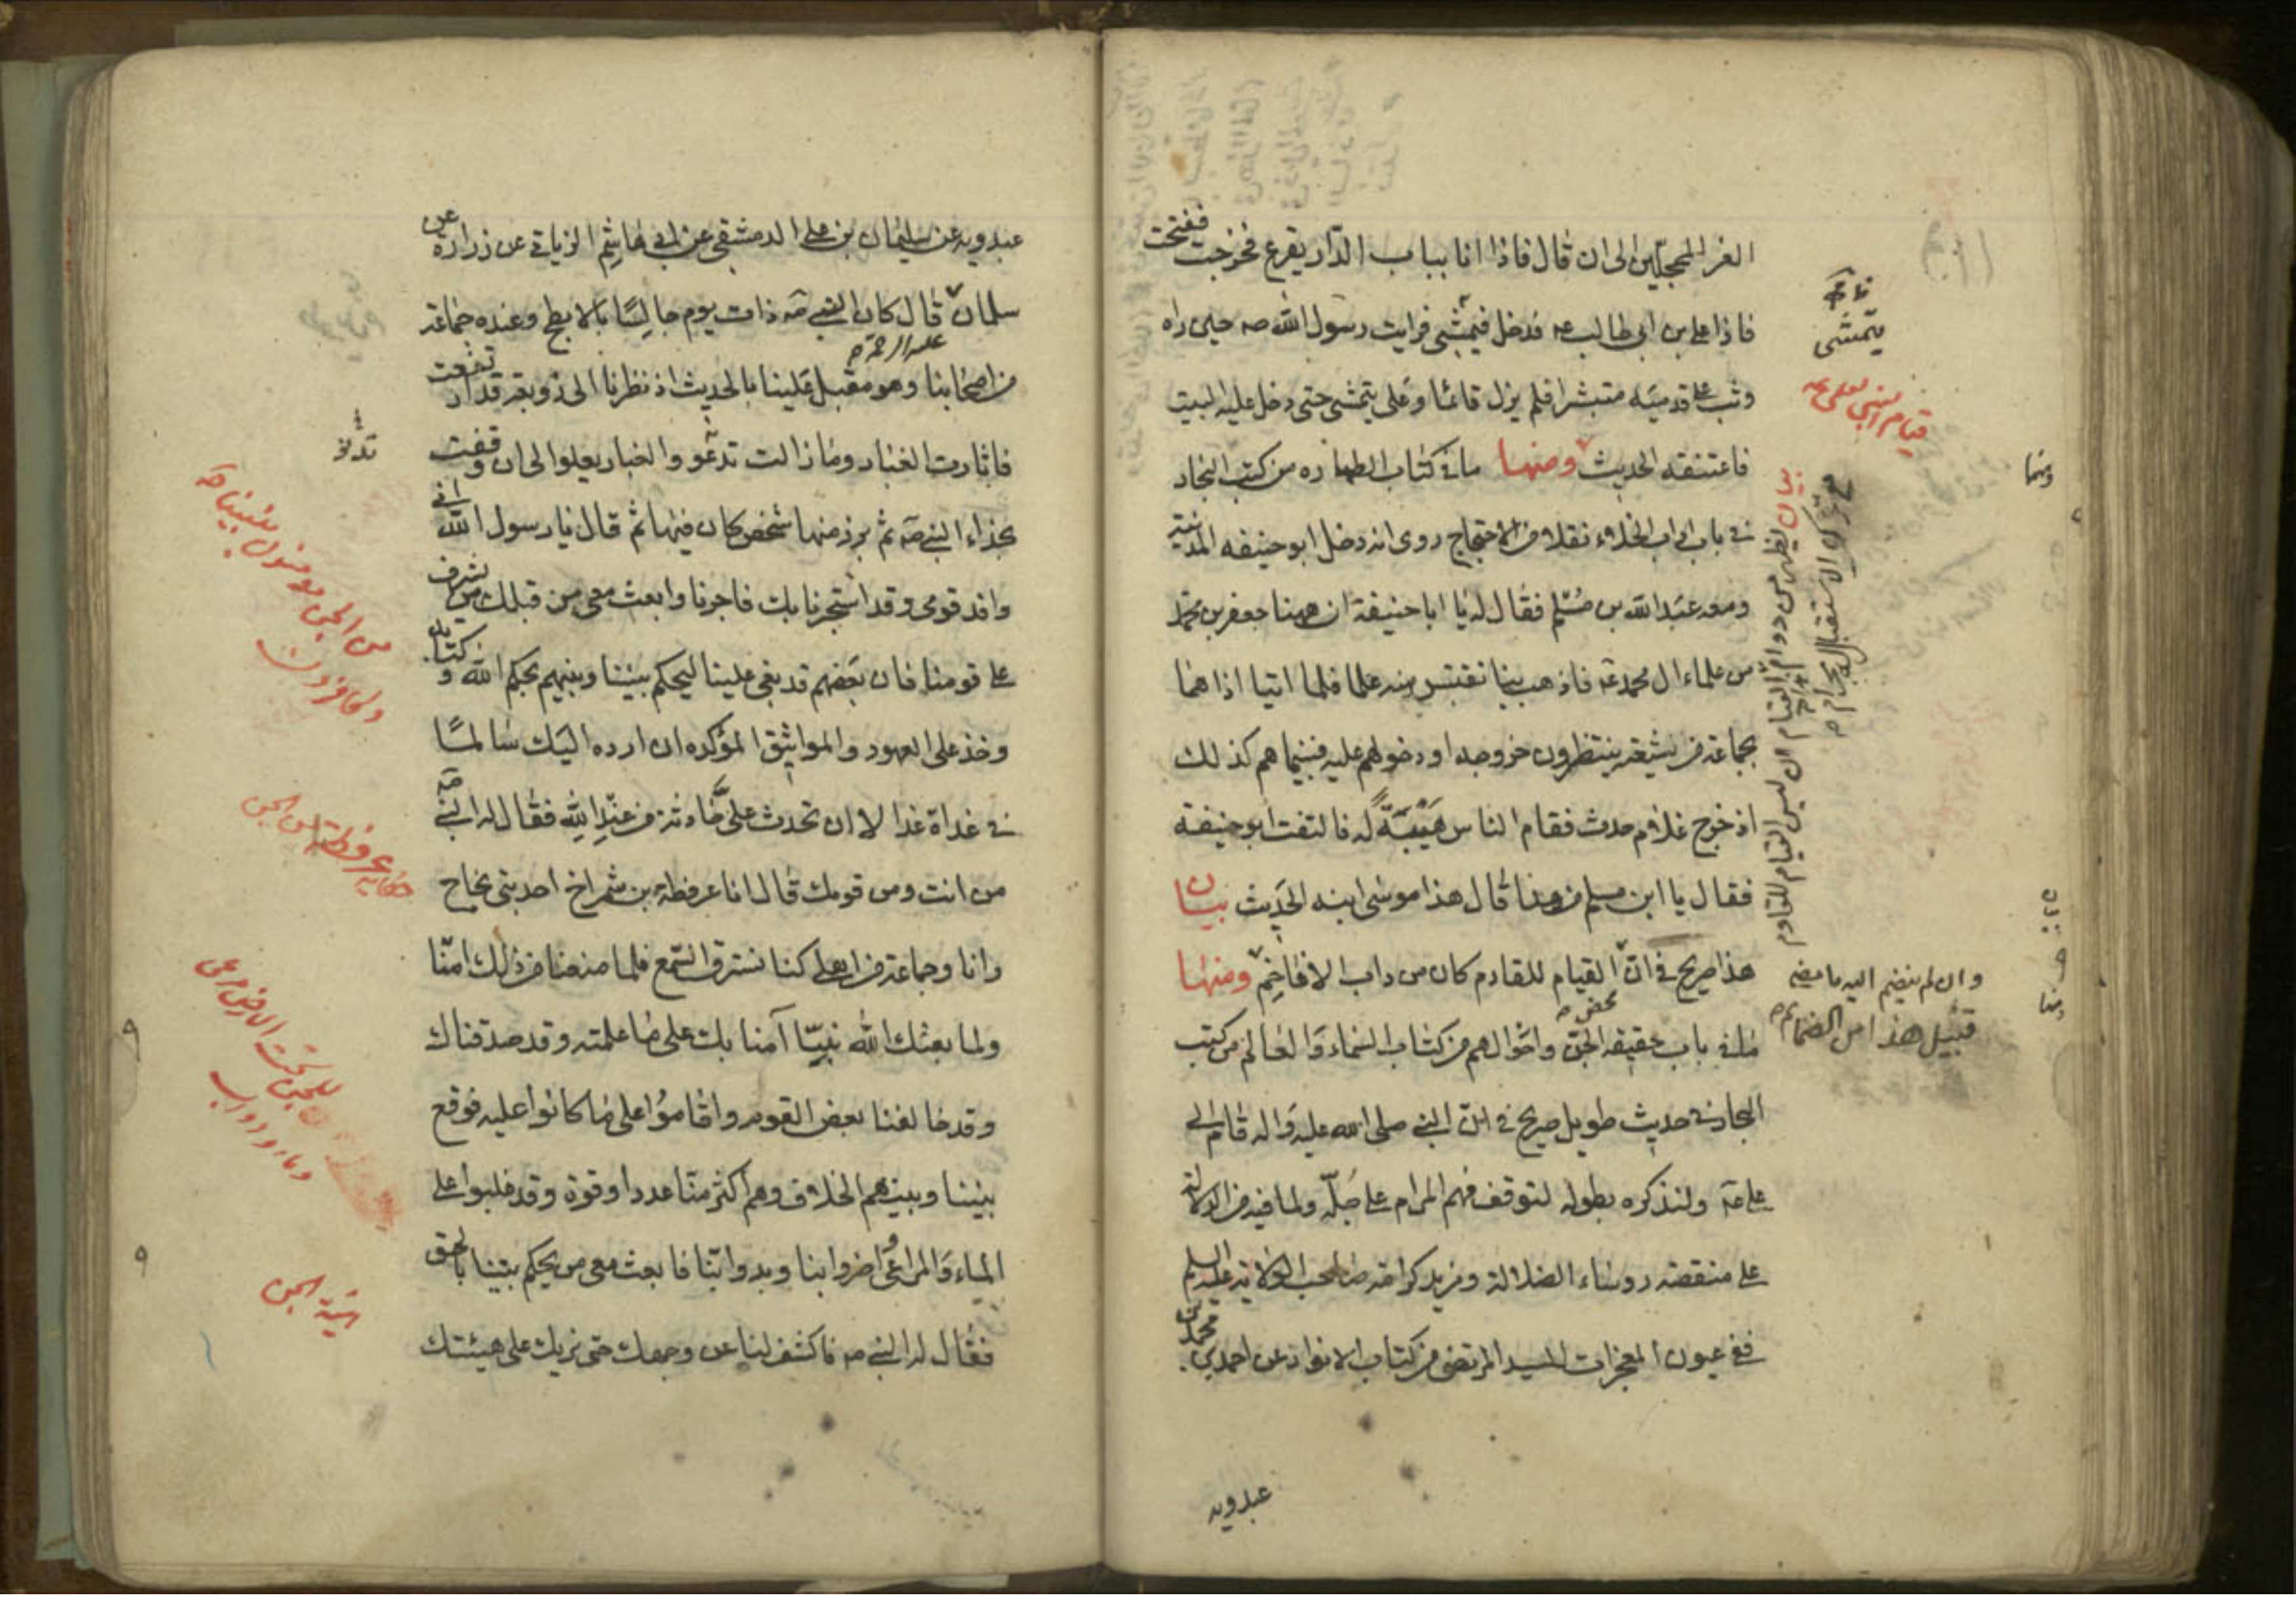 الغر المحجلين الى ان قال فاذا انا بباب الدار يقرع فخرجت ففتحت
فاذا علي بن ابي طالب عه فدخل فيمشى فرايت رسول الله صه حين راه
وثب على قدميه مستبشرا فلم يزل قائما وعلى يتمشى حتى دخل عليه البيت
فاعتنقه الحديث ومنها ما في كتاب الطهاره من كتب البحار
في باب اداب الخلاء نقلا من الاحتجاج روى انه دخل ابو حنيفه المدينة
ومعه عبد الله بن مسلم فقال له يا ابا حنيفة ان ههنا جعفر بن محمد
من علماء ال محمد عه فاذهب بنا نقتبس منه علما فلما اتيا اذا هما
بجماعة من شيعته ينتظرون خروجه او دخولهم عليه فبينما هم كذلك
اذ خرج غلام حدث فقام الناس هيبة له فالتفت ابو حنيفة
فقال يا ابن مسلم من هذا قال هذا موسى ابنه الحديث بيان
هذا صريح في ان القيام للقادم كان من داب الافاخم ومنها
ما في باب حقيقة الجن واحوالهم من كتاب السماء والعالم من كتب
البحار في حديث طويل صريح في ان النبي صلى الله عليه واله قام الى
على عه ولنذكره بطوله لتوقف فهم المرام على جله ولما فيه من الدلالة
على منقصة روساء الضلالة ومزيد كرامة صاحب الولاية عليه السلم
ففي عيون المعجزات للسيد المرتضى من كتاب الانوار عن احمد بن محمد بن
عبدويه
يتمشى
قيام النبي لعلي عه
بيان الظهر من دوام القيام ان ليس القيام للقادم
مع ترك الاستقبال له بحرام
وان لم ينضم اليه ما يضم
قبيل هذا من الضمائم
ومنها
بيان
ومنها
عبدويه عن سليمان بن علي الدمشقي عن ابي هاشم الزباني عن زرارة عن
سلمان قال كان النبي صه ذات يوم جالسا بالابطح وعنده جماعة
عليه الرحمة
من اصحابنا وهو مقبل علينا بالحديث اذ نظرنا الى زوبعة قد ارتفعت
فاثارت الغبار وما زالت تدعو والغبار يعلو الى ان وقفت
بحذاء النبي صه ثم برز منها شخص كان فيها ثم قال يا رسول الله اني
وافد قومي وقد استجرنا بك فاجرنا وابعث معي من قبلك من يشرف
على قومنا فان بعضهم قد بغى علينا ليحكم بيننا وبينهم بحكم الله وكتابه
وخذ على العهود والمواثيق المؤكده ان ارده اليك سالما
في غداة غد الا ان تحدث على حادثة من عند الله فقال له النبي صه
من انت ومن قومك قال انا عرفطة بن شمراخ احد بني نجاح
وانا وجماعة من اهلي كنا نسترق السمع فلما منعنا من ذلك امنا
ولما بعثك الله نبيا آمنا بك على ما علمته وقد صدقناك
وقد خالفنا بعض القوم واقاموا على ما كانوا عليه فوقع
بيننا وبينهم الخلاف وهم اكثر منا عددا وقوة وقد غلبوا على
الماء والمراعي واضروا بنا وبدوابنا فابعث معي من يحكم بيننا بالحق
فقال له النبي صه فاكشف لنا عن وجهك حتى نريك على هيئتك
من الجن مومنون بنبينا صه
وكافرون
حكاية عرفطة من الجن
للجن تحت الارض مرعى
وماء ودواب
هيئة الجن